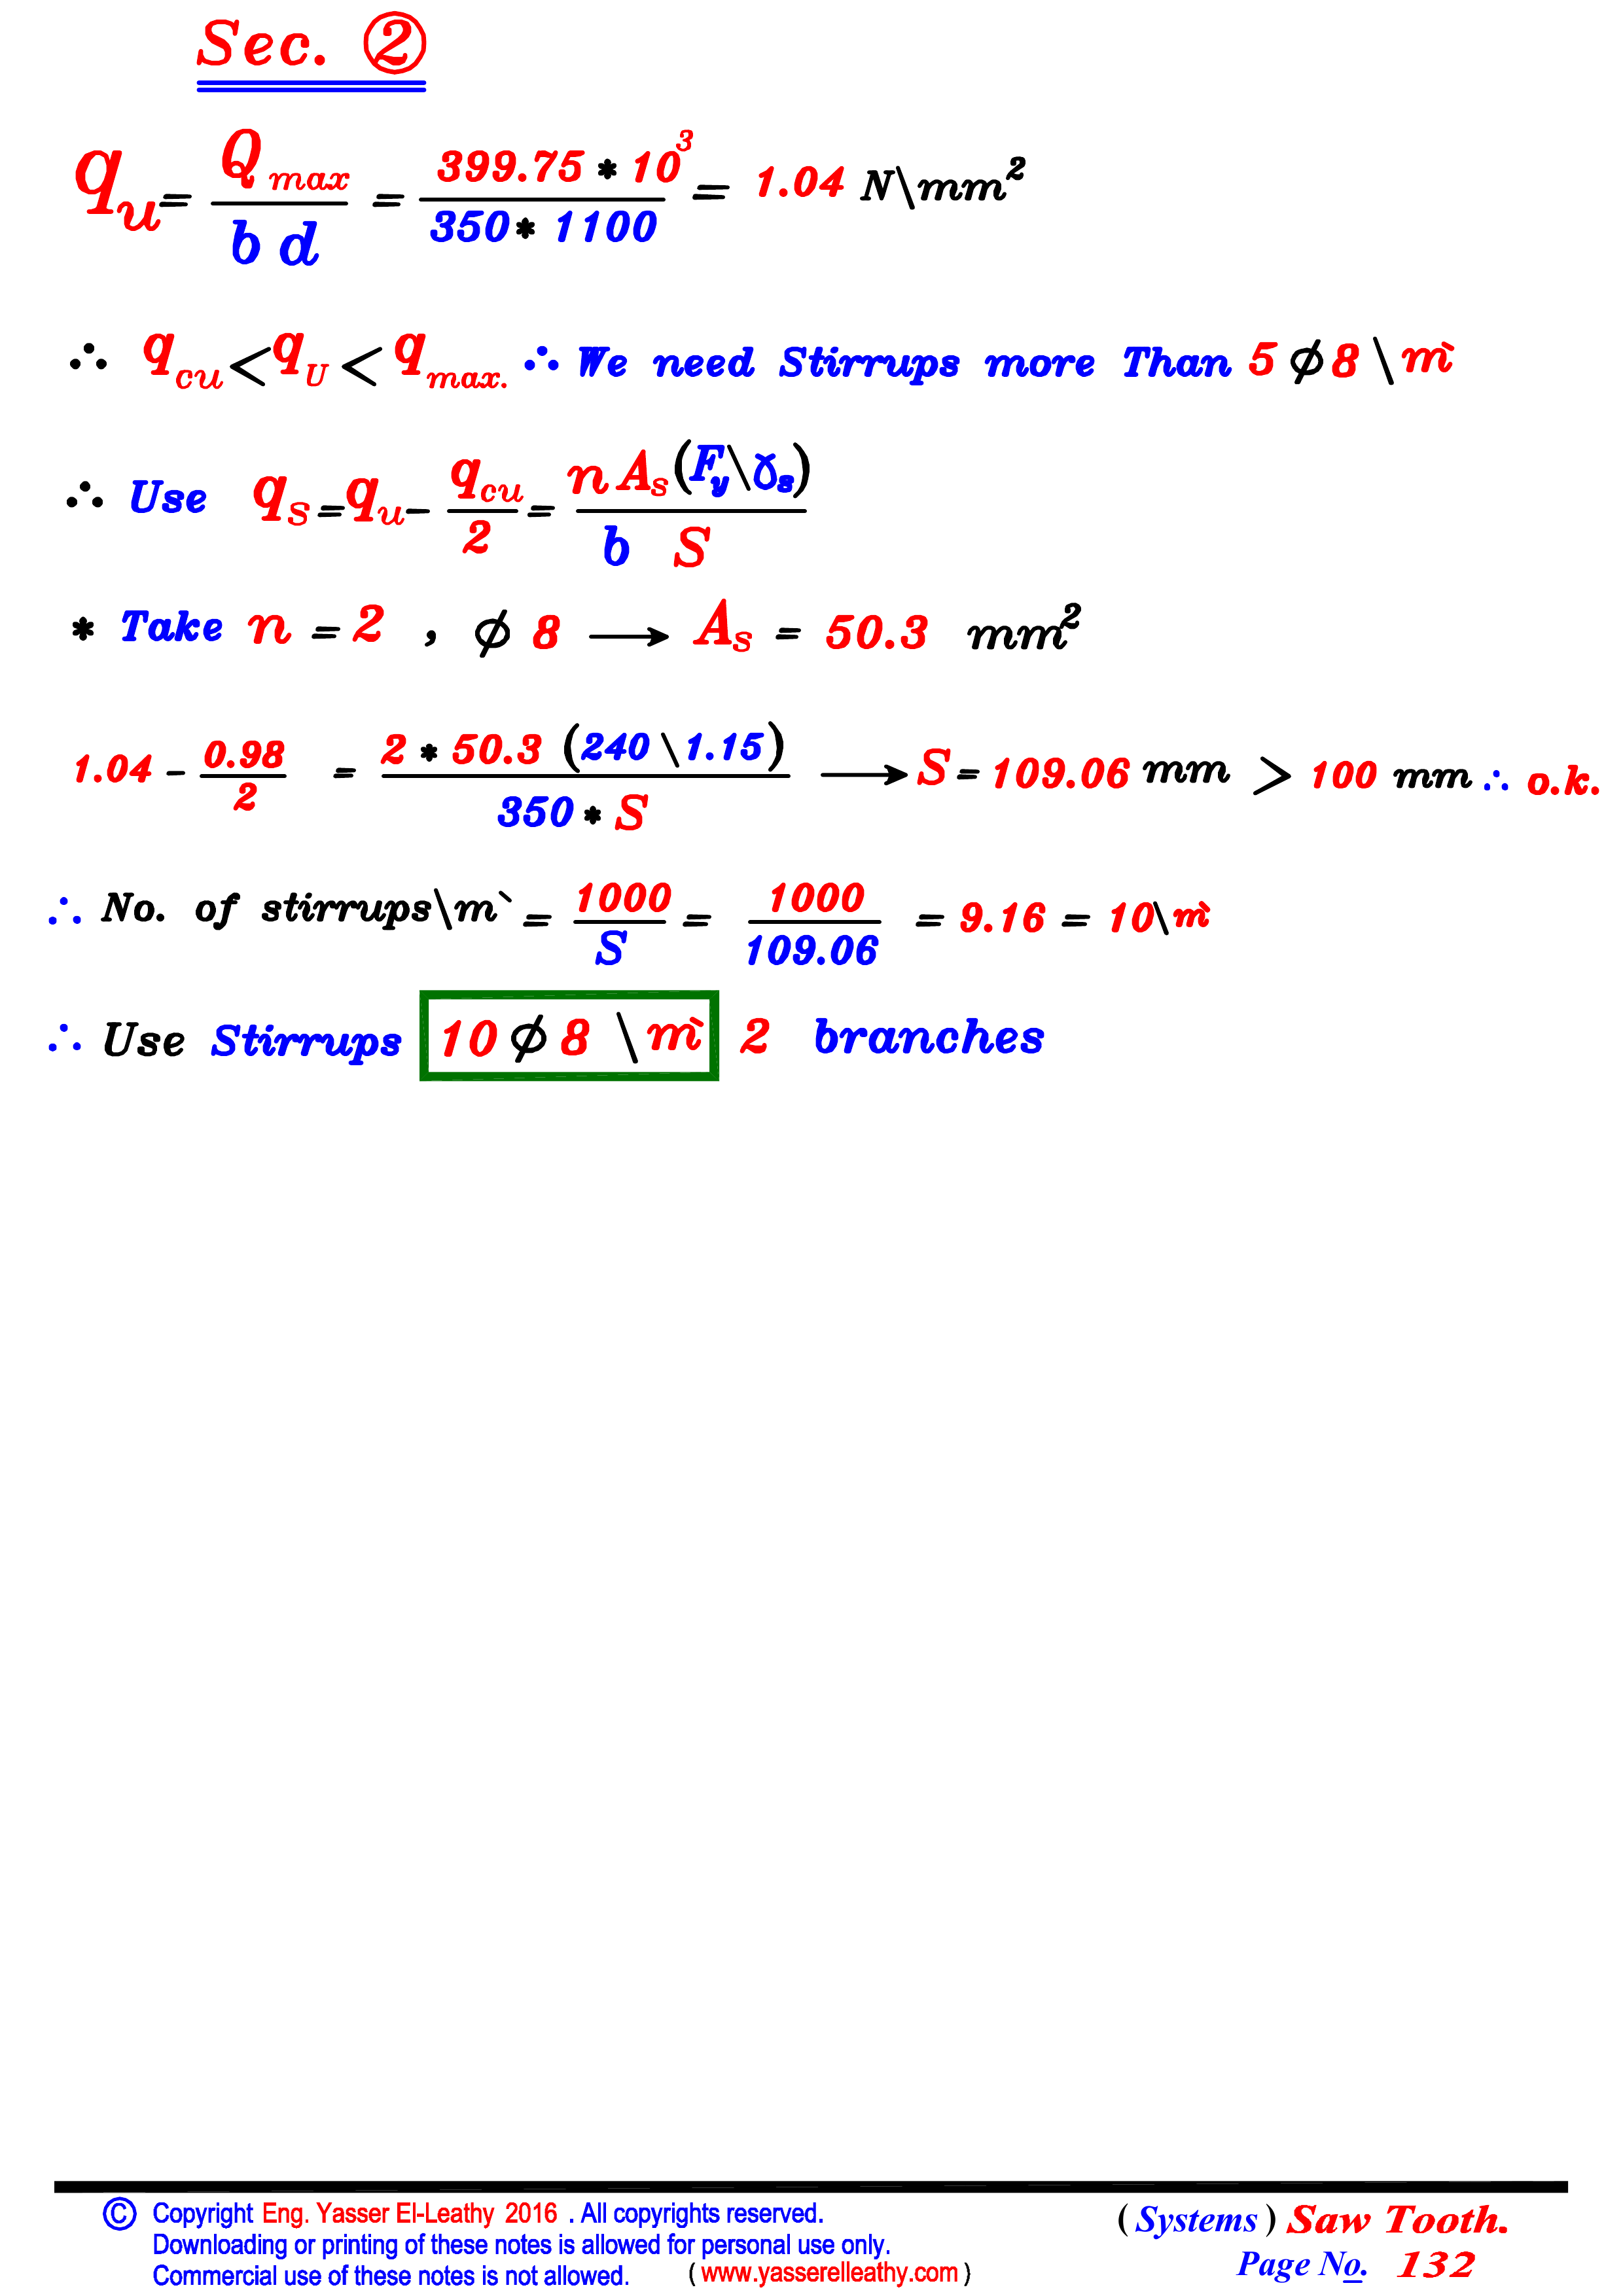 Sec. ②
q_u = Q_max / b d = 399.75 * 10^3 / 350 * 1100 = 1.04 N\mm^2
∴ q_cu < q_U < q_max. ∴ We need Stirrups more Than 5 ϕ 8 \ m`
∴ Use q_s = q_u - q_cu / 2 = n A_s (F_y \ γ_s) / b S
* Take n = 2 , ϕ 8 → A_s = 50.3 mm^2
1.04 - 0.98 / 2 = 2 * 50.3 (240 \ 1.15) / 350 * S → S = 109.06 mm > 100 mm ∴ o.k.
∴ No. of stirrups\m` = 1000 / S = 1000 / 109.06 = 9.16 = 10\m`
∴ Use Stirrups 10 ϕ 8 \ m` 2 branches
© Copyright Eng. Yasser El-Leathy 2016 . All copyrights reserved.
Downloading or printing of these notes is allowed for personal use only.
Commercial use of these notes is not allowed. ( www.yasserelleathy.com )
( Systems ) Saw Tooth.
Page No. 132